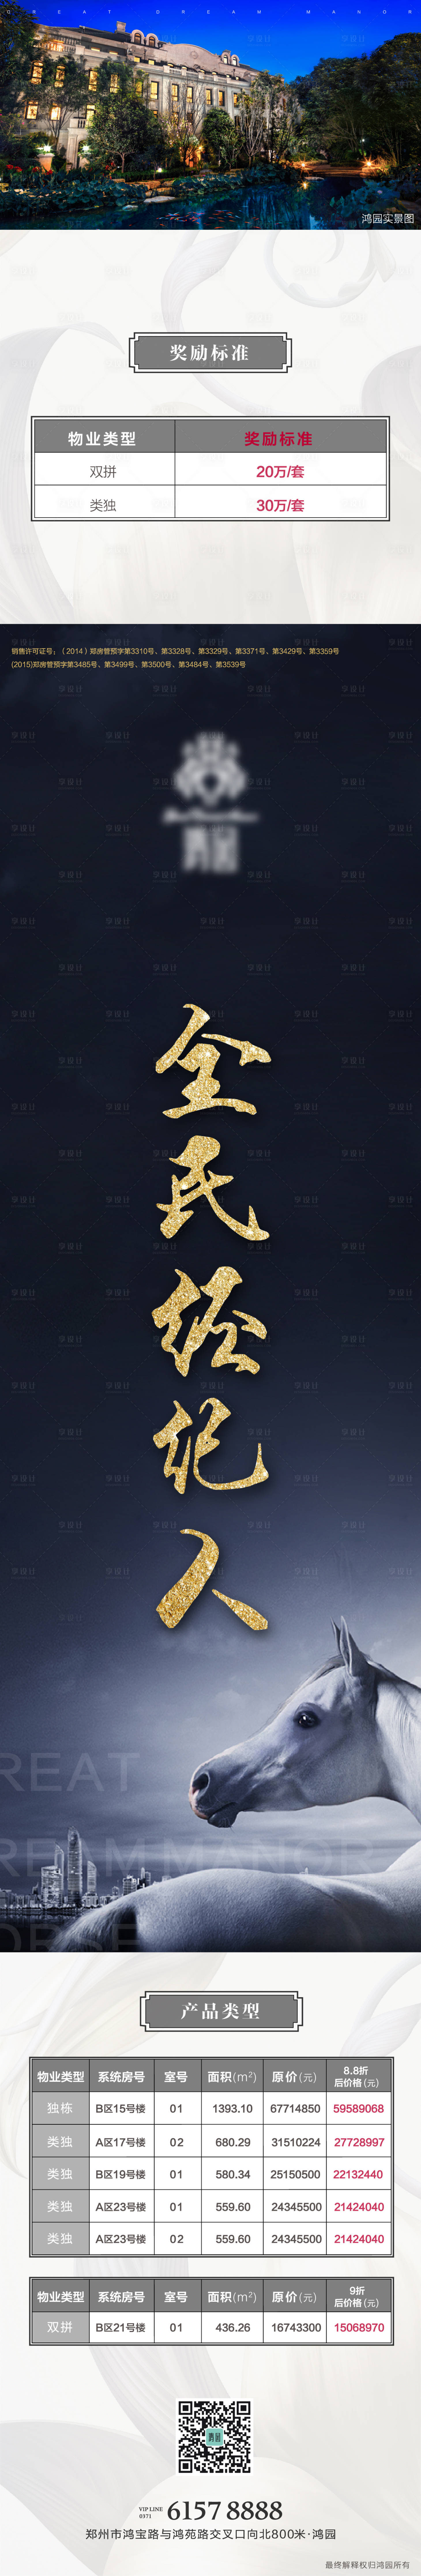 GREAT DREAM MANOR
鸿园实景图
奖励标准
物业类型 奖励标准
双拼 20万/套
类独 30万/套
销售许可证号：（2014）郑房管预字第3310号、第3328号、第3329号、第3371号、第3429号、第3359号
(2015)郑房管预字第3485号、第3499号、第3500号、第3484号、第3539号
全
民
经
纪
人
REAT
REAM MAN
ORSE
产品类型
物业类型 系统房号 室号 面积(m²) 原价(元) 8.8折
后价格(元)
独栋 B区15号楼 01 1393.10 67714850 59589068
类独 A区17号楼 02 680.29 31510224 27728997
类独 B区19号楼 01 580.34 25150500 22132440
类独 A区23号楼 01 559.60 24345500 21424040
类独 A区23号楼 02 559.60 24345500 21424040
物业类型 系统房号 室号 面积(m²) 原价(元) 9折
后价格(元)
双拼 B区21号楼 01 436.26 16743300 15068970
VIP LINE
0371 6157 8888
郑州市鸿宝路与鸿苑路交叉口向北800米·鸿园
最终解释权归鸿园所有
享设计